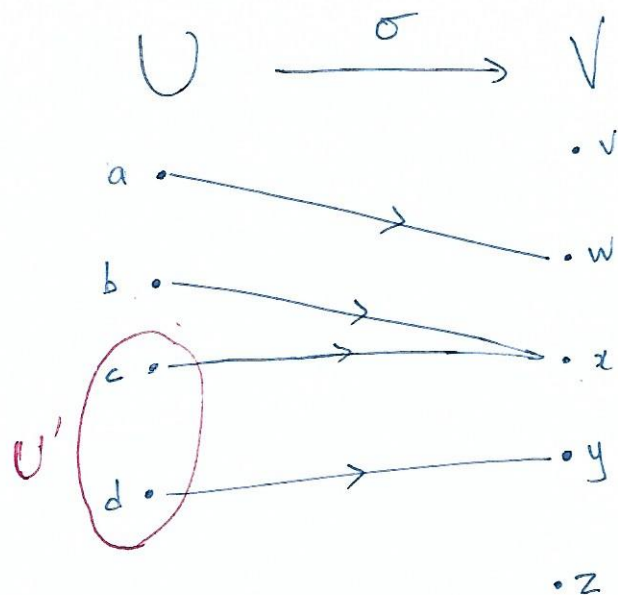 U σ V
v
a
w
b
c
x
U'
y
d
z